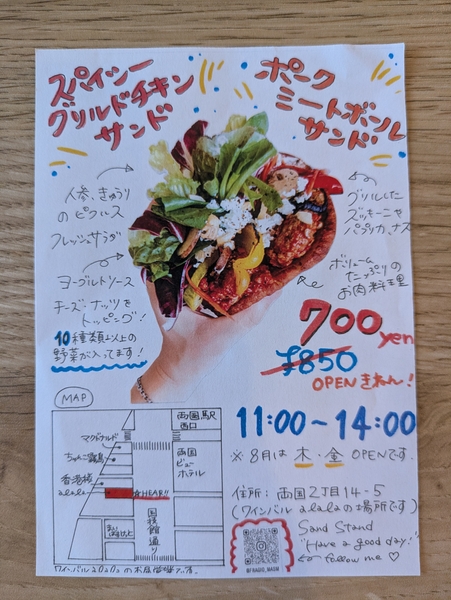 スパイシー
グリルドチキン
サンド
ポーク
ミートボール
サンド
人参、きゅうり
のピクルス
フレッシュサラダ
ヨーグルトソース
チーズ、ナッツを
トッピング!
10種類以上の
野菜が入ってます!
グリルした
ズッキーニや
パプリカ、ナス
ボリューム
たっぷりの
お肉料理
700yen
¥850
OPENきねん!
11:00~14:00
※8月は木・金OPENです.
住所:両国2丁目14-5
(ワインバルalalaの場所です)
Sand Stand
"Have a good day!"
follow me ♡
MAP
両国駅
西口
マクドナルド
ちゃんこ霧島
両国
ビュー
ホテル
香港楼
alala
☆HEAR!!
国技館通り
まいばすけっと